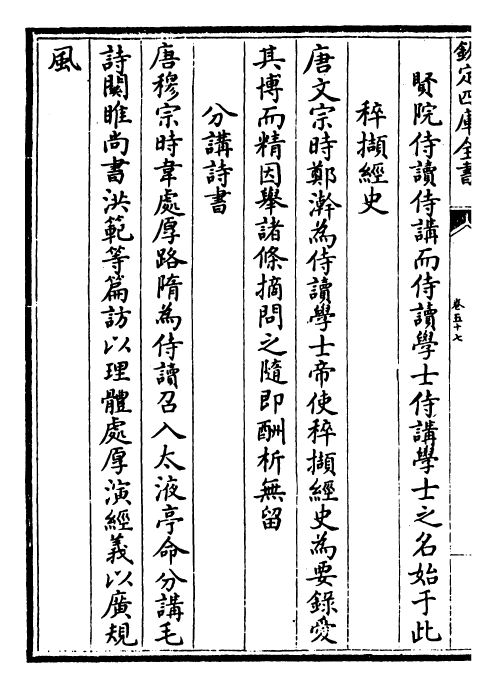 欽定四庫全書
卷五十七
賢院侍讀侍講而侍讀學士侍講學士之名始于此
稡擷經史
唐文宗時鄭澣為侍讀學士帝使稡擷經史為要錄愛
其博而精因舉諸條摘問之隨即酬析無留
分講詩書
唐穆宗時韋處厚路隋為侍讀召入太液亭命分講毛
詩關睢尚書洪範等篇訪以理體處厚演經義以廣規
風